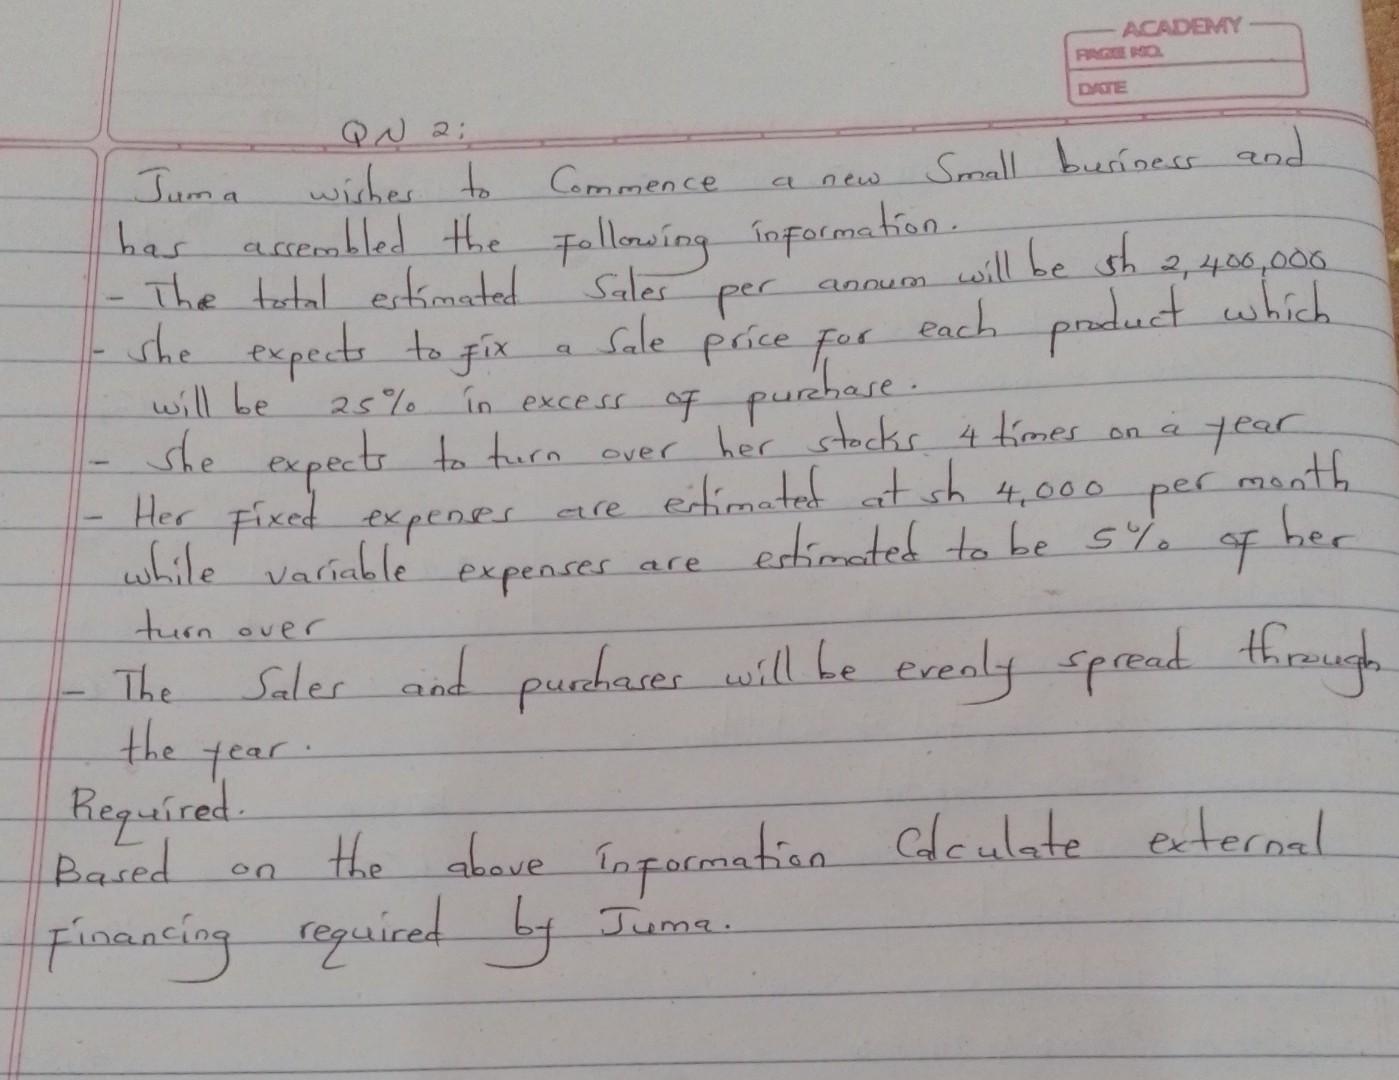 ACADEMY
PAGE NO.
DATE
QN 2:
Juma wishes to Commence a new Small business and
has assembled the following information.
- The total estimated Sales per annum will be sh 2,400,000
- She expects to fix a sale price for each product which
will be 25% in excess of purchase.
- She expects to turn over her stocks 4 times on a year
- Her fixed expenses are estimated at sh 4,000 per month
while variable expenses are estimated to be 5% of her
turn over
- The Sales and purchases will be evenly spread through
the year.
Required.
Based on the above information Calculate external
Financing required by Juma.